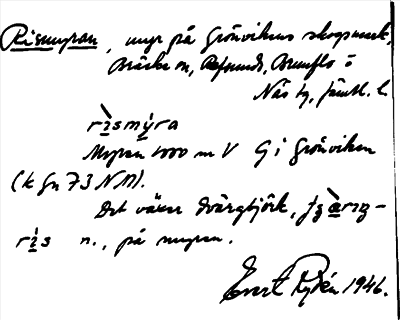 Rismyran, myr på Grönvikens skogsmark,
Bräcke sn, Refsunds, Brunflo o
Näs tg, Jämtl. l.
rìsmýra
Myran 1000 m V G i Grönviken
(k fn 73 NM).
Det växer dvärgbjörk,
rìs n., på myran.
Evert Rydén 1946.